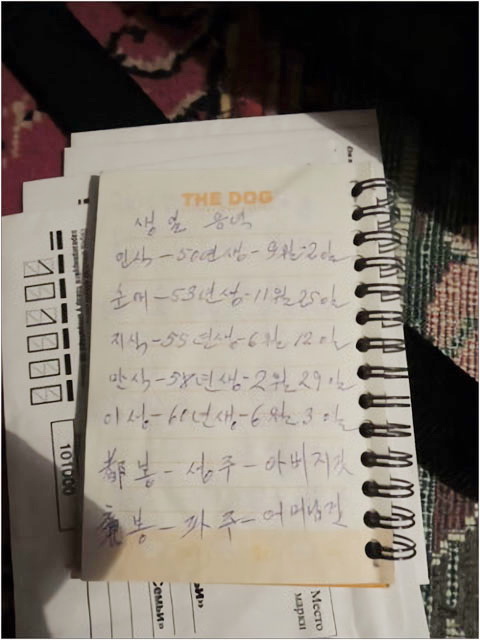 THE DOG
생일 음력
인식-50년생-9월2일
순메-53년생-11월25일
지식-55년생-6월12일
만식-58년생-2월29일
이성-60년생-6월3일
봉-성주-아버지것
봉-파주-어머님것
101000
Семьи»
ьи»
Место
марки